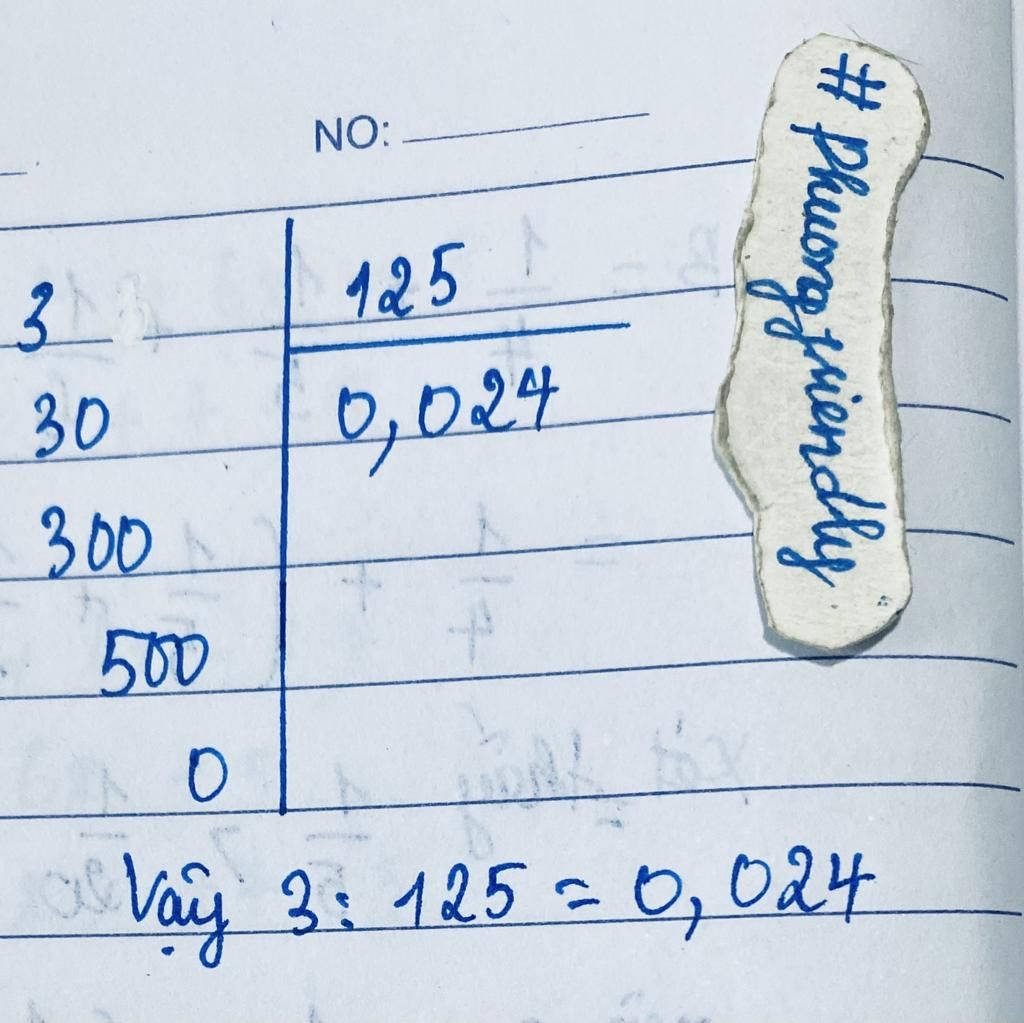 NO:
3 125
30 0,024
300
500
0
Vậy 3: 125 = 0,024
# Phuongfriendly